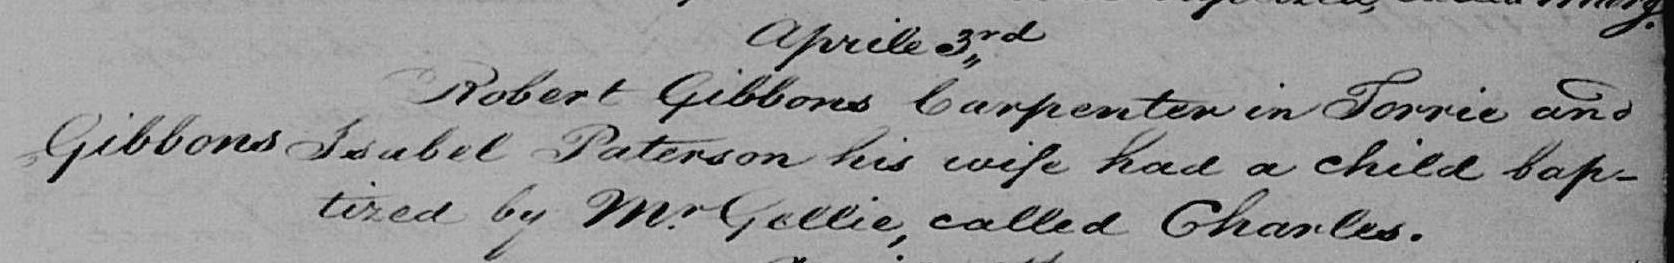 Aprile 3rd
Robert Gibbons Carpenter in Torrie and
Gibbons Isabel Paterson his wife had a child bap-
tized by Mr. Gellie, called Charles.